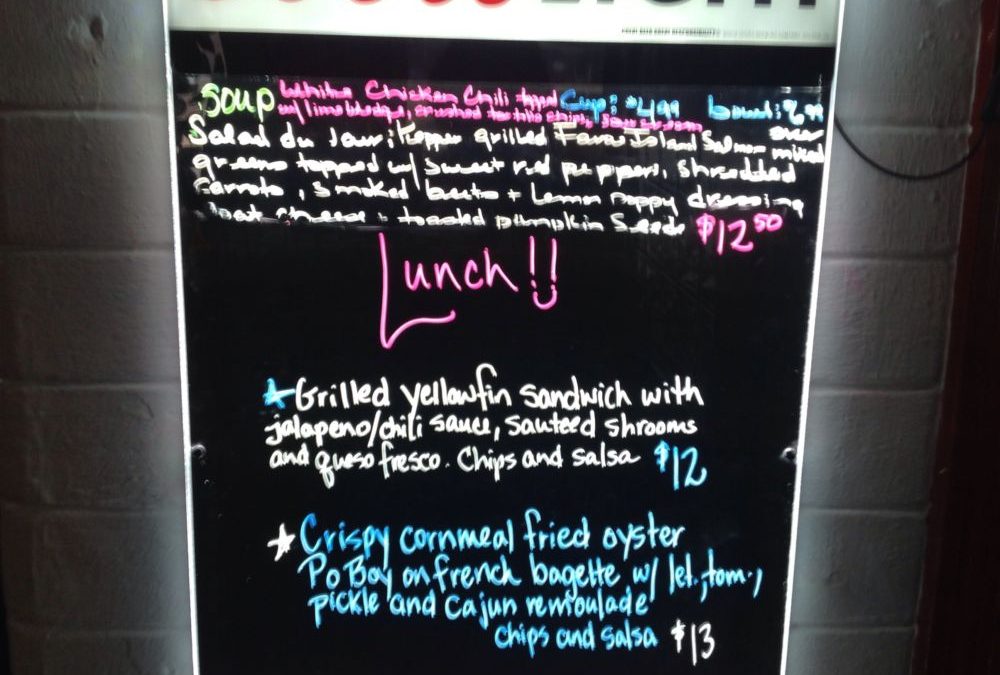 Soup White Chicken Chili topped Cup: $4.99 bowl: 6.99
w/ lime wedge, crushed tortilla chips, sour cream
Salad du Jour: Pepper grilled Faro Island Salmon over mixed
greens topped w/ sweet red peppers, shredded
carrots, smoked beets + Lemon Poppy dressing
goat cheese + toasted pumpkin Seeds $12.50
Lunch!!
Grilled yellowfin sandwich with
jalapeno/chili sauce, sauteed shrooms
and queso fresco. Chips and salsa $12
Crispy cornmeal fried oyster
Po Boy on french bagette w/ let., tom.,
pickle and Cajun remoulade
chips and salsa $13